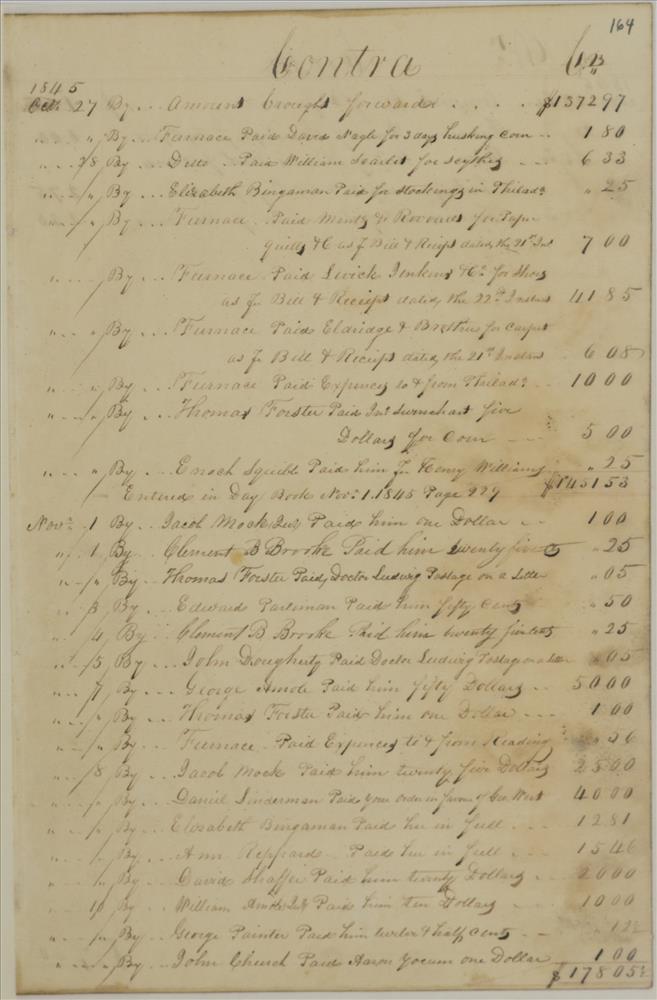 164
Contra Cr
1845
Oct. 27 By .. Amount Brought forward .... $1372 97
" " By .. Furnace Paid David Nagle for 3 days husking Corn .. 1 80
" 28 By .. Ditto .. Paid William Scarlet for Scythes --- 6 33
" " By .. Elizabeth Bingaman Paid for Stockings in Philada " 25
" " By .. Furnace Paid Mentz & for Paper
quills &C as pr Bill & Receipt dated the 21st Inst 7 00
" " By .. Furnace Paid Jenkins & Co for Shoes
as pr Bill & Receipt dated the 22nd Instant 41 85
" " By .. Furnace Paid Eldridge & Brother for Carpet
as pr Bill & Receipt dated the 21st Instant .. 6 08
" " By .. Furnace Paid Expences to & from Philada .. 10 00
" " By .. Thomas Forster Paid Jno Swinehart five
Dollars for Corn --- 5 00
" " By .. Enoch Squibb Paid him pr Henry Williams " 25
Entered in Day Book Nov. 1. 1845 Page 229 $1451 53
Nov. 1 By .. Jacob Mock Jur Paid him one Dollar .. 1 00
" 1 By .. Clement B Brooke Paid him twenty five cts " 25
" " By .. Thomas Forster Paid Doctor Ludwig Postage on a Letter " 05
" 3 By .. Edward Parleman Paid him fifty Cents " 50
" 4 By .. Clement B Brooke Paid him twenty five Cents " 25
" 5 By .. John Dougherty Paid Doctor Ludwig Postage on a letter " 05
" 7 By .. George Amole Paid him fifty Dollars .. 50 00
" " By .. Thomas Forster Paid him one Dollar --- 1 00
" " By .. Furnace Paid Expences to & from Reading " 56
" 8 By .. Jacob Mock Paid him twenty five Dollars 25 00
" " By .. Daniel Linderman Paid your order in favour of Geo. West 40 00
" " By .. Elizabeth Bingaman Paid her in full --- 12 81
" " By .. Ann Reppard Paid her in full --- 15 46
" " By .. David Shaffer Paid him twenty Dollars .. 20 00
" 10 By .. William Amole Jur Paid him ten Dollars .. 10 00
" " By .. George Painter Paid him twelve & half Cents " 12½
" " By .. John Church Paid Aaron Yocum one Dollar 1 00
$178 05½